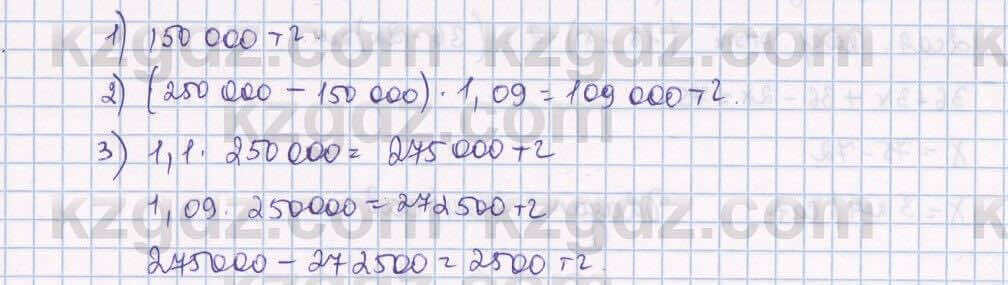 1) 150 000 тг.
2) (250 000 - 150 000) · 1,09 = 109 000 тг.
3) 1,1 · 250 000 = 275 000 тг
1,09 · 250000 = 272500 тг
275000 - 272500 = 2500 тг.
kzgdz.com kzgdz.com
kzgdz.com
kzgdz.com kzgdz.com